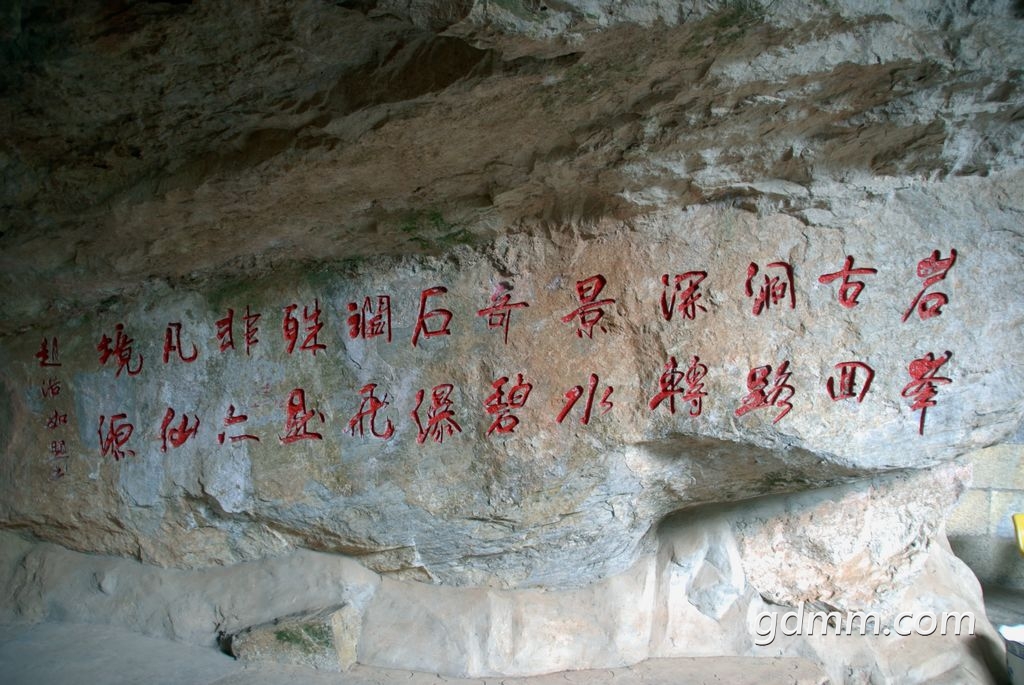 岩古洞深景奇石潤殊非凡境
峯回路轉水碧瀑飛是亦仙源
趙浩如題
gdmm.com